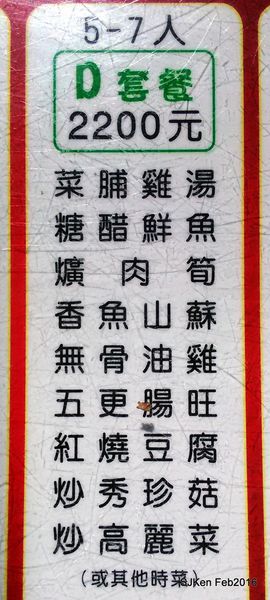 5-7人
D套餐
2200元
菜脯雞湯
糖醋鮮魚
爌肉筍
香魚山蘇
無骨油雞
五更腸旺
紅燒豆腐
炒秀珍菇
炒高麗菜
(或其他時菜)
©JKen Feb2016